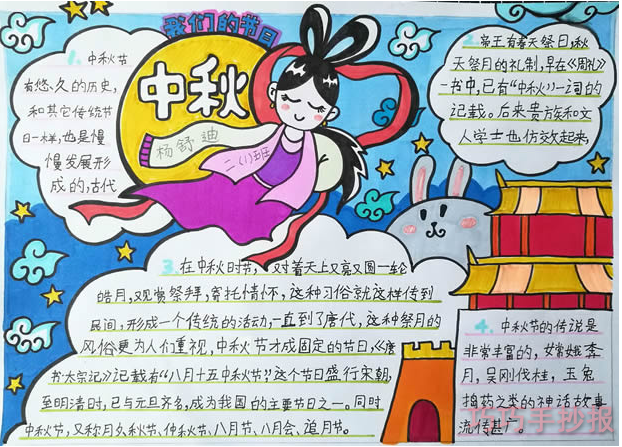 我们的节日
中秋
杨舒迪
二(1)班
1. 中秋节
有悠久的历史,
和其它传统节
日一样,也是慢
慢发展形
成的,古代
2. 帝王有春天祭日,秋
天祭月的礼制,早在《周礼》
一书中,已有“中秋”一词的
记载。后来贵族和文
人学士也仿效起来,
3. 在中秋时节, 对着天上又亮又圆一轮
皓月,观赏祭拜,寄托情怀,这种习俗就这样传到
民间,形成一个传统的活动,一直到了唐代,这种祭月的
风俗更为人们重视,中秋节才成固定的节日,《唐
书太宗记》记载有“八月十五中秋节”,这个节日盛行宋朝,
至明清时,已与元旦齐名,成为我国的主要节日之一。同时
中秋节,又称月夕秋节、仲秋节、八月节、八月会、追月节。
4. 中秋节的传说是
非常丰富的,嫦娥奔
月,吴刚伐桂,玉兔
捣药之类的神话故事
流传甚广。
巧巧手抄报